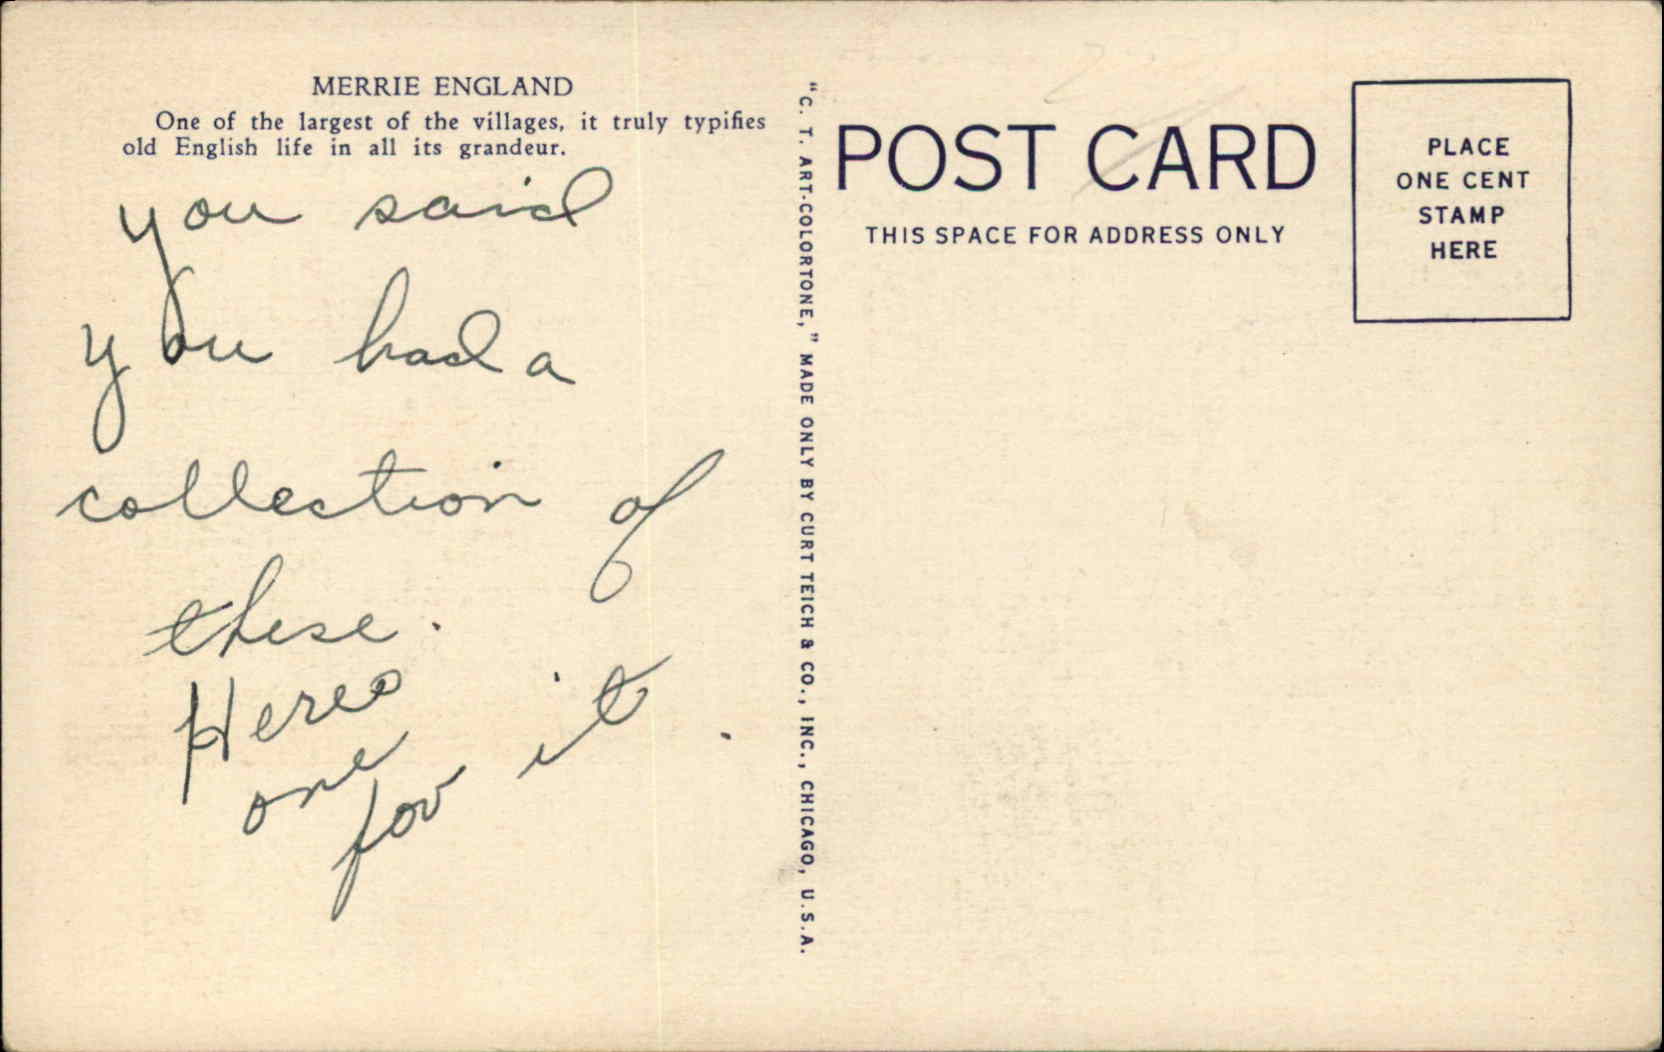 MERRIE ENGLAND
One of the largest of the villages, it truly typifies
old English life in all its grandeur.
you said
you had a
collection of
these.
Heres
one
for it.
"C. T. ART-COLORTONE," MADE ONLY BY CURT TEICH & CO., INC., CHICAGO, U.S.A.
POST CARD
THIS SPACE FOR ADDRESS ONLY
PLACE
ONE CENT
STAMP
HERE